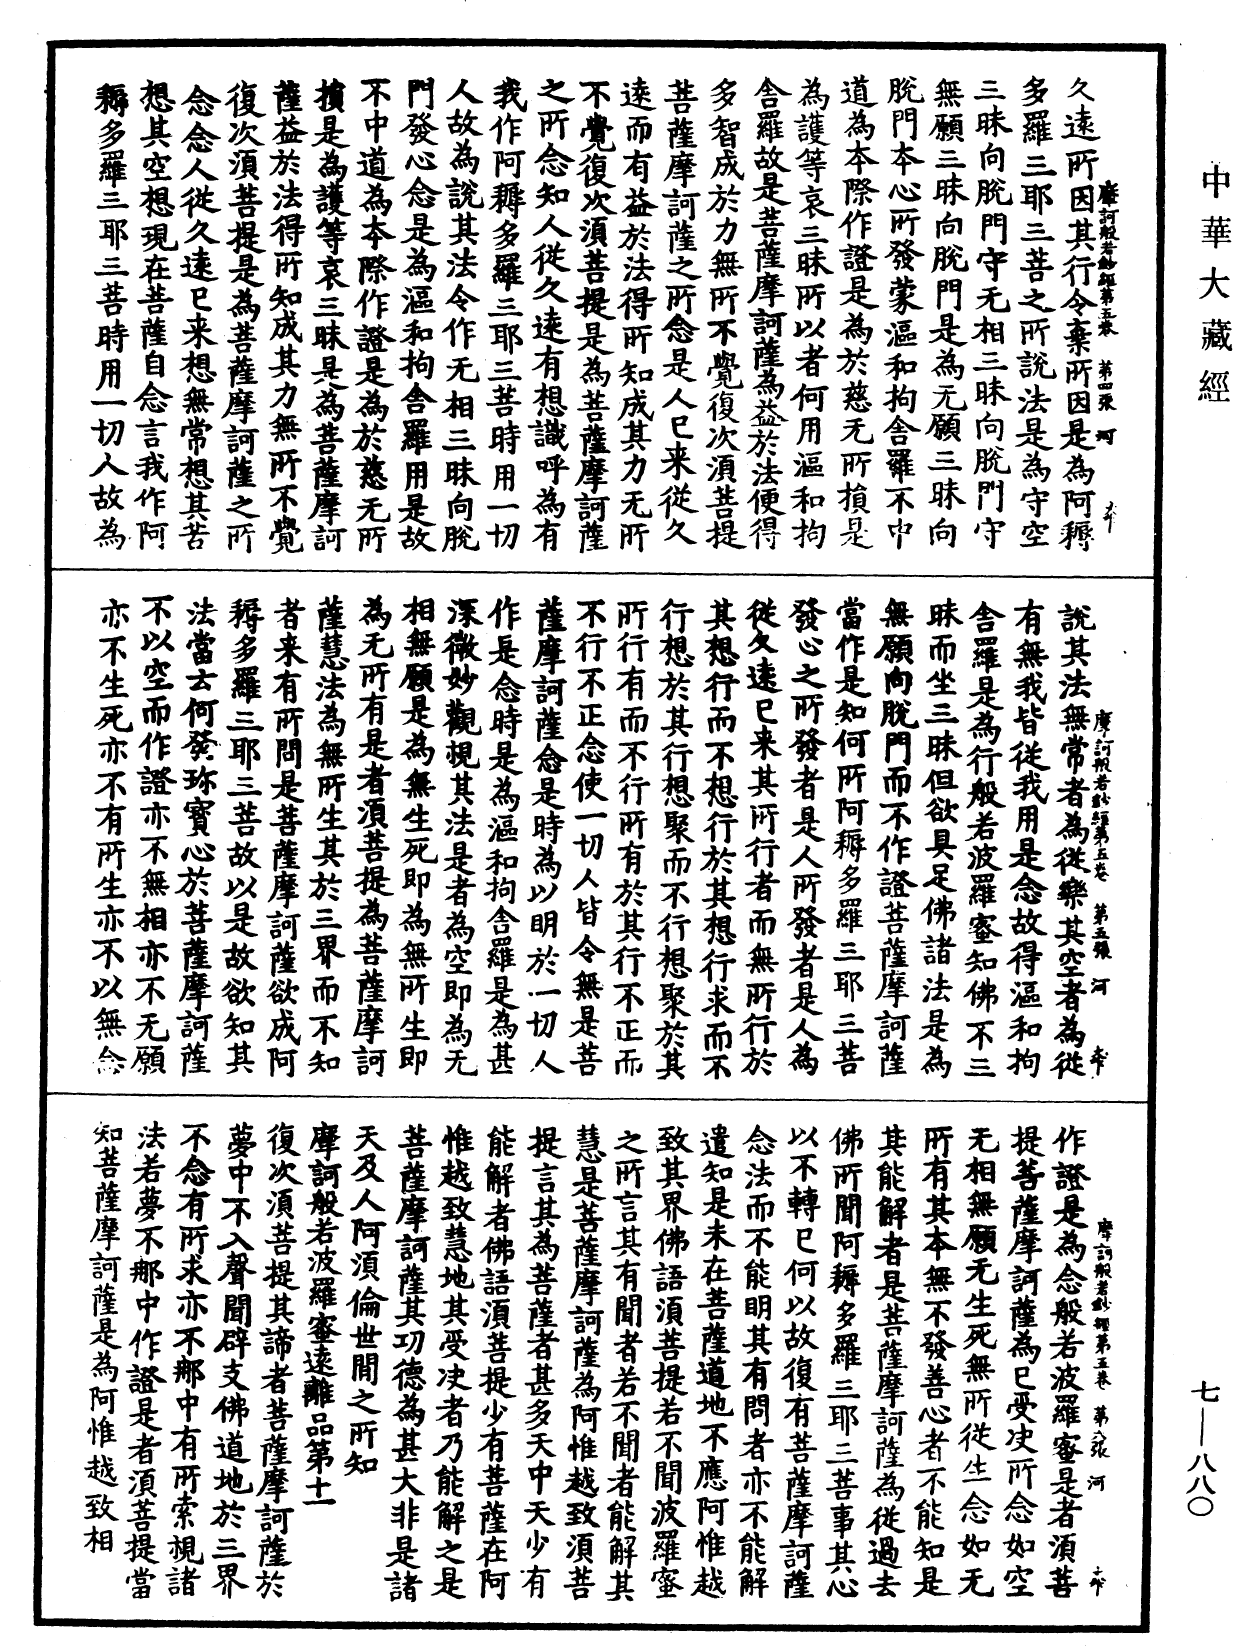 中華大藏經
摩訶般若鈔經第五卷　第四張　河
久遠所因其行令棄所因是為阿耨
多羅三耶三菩之所說法是為守空
三昧向脫門守无相三昧向脫門守
無願三昧向脫門是為无願三昧向
脫門本心所發蒙漚和拘舍羅不中
道為本際作證是為於慈无所損是
為護等哀三昧所以者何用漚和拘
舍羅故是菩薩摩訶薩為益於法便得
多智成於力無所不覺復次須菩提
菩薩摩訶薩之所念是人已来從久
遠而有益於法得所知成其力无所
不覺復次須菩提是為菩薩摩訶薩
之所念知人從久遠有想識呼為有
我作阿耨多羅三耶三菩時用一切
人故為說其法令作无相三昧向脫
門發心念是為漚和拘舍羅用是故
不中道為本際作證是為於慈无所
損是為護等哀三昧是為菩薩摩訶
薩益於法得所知成其力無所不覺
復次須菩提是為菩薩摩訶薩之所
念念人從久遠已来想無常想其苦
想其空想現在菩薩自念言我作阿
耨多羅三耶三菩時用一切人故為
摩訶般若鈔經第五卷　第五張　河
說其法無常者為從樂其空者為從
有無我皆從我用是念故得漚和拘
舍羅是為行般若波羅蜜知佛不三
昧而坐三昧但欲具足佛諸法是為
無願向脫門而不作證菩薩摩訶薩
當作是知何所阿耨多羅三耶三菩
發心之所發者是人所發者是人為
從久遠已来其所行者而無所行於
其想行而不想行於其想行求而不
行想於其行想聚而不行想聚於其
所行有而不行所有於其行不正而
不行不正念使一切人皆令無是菩
薩摩訶薩念是時為以明於一切人
作是念時是為漚和拘舍羅是為甚
深微妙觀視其法是者為空即為无
相無願是為無生死即為無所生即
為无所有是者須菩提為菩薩摩訶
薩慧法為無所生其於三界而不知
者来有所問是菩薩摩訶薩欲成阿
耨多羅三耶三菩故以是故欲知其
法當云何發珎寳心於菩薩摩訶薩
不以空而作證亦不無相亦不无願
亦不生死亦不有所生亦不以無念
摩訶般若鈔經第五卷　第六張　河
作證是為念般若波羅蜜是者須菩
提菩薩摩訶薩為已受决所念如空
无相無願无生死無所從生念如无
所有其本無不發善心者不能知是
其能解者是菩薩摩訶薩為從過去
佛所聞阿耨多羅三耶三菩事其心
以不轉已何以故復有菩薩摩訶薩
念法而不能明其有問者亦不能解
遣知是未在菩薩道地不應阿惟越
致其界佛語須菩提若不聞波羅蜜
之所言其有聞者若不聞者能解其
慧是菩薩摩訶薩為阿惟越致須菩
提言其為菩薩者甚多天中天少有
能解者佛語須菩提少有菩薩在阿
惟越致慧地其受决者乃能解之是
菩薩摩訶薩其功德為甚大非是諸
天及人阿須倫世閒之所知
摩訶般若波羅蜜遠離品第十一
復次須菩提其諦者菩薩摩訶薩於
夢中不入聲聞辟支佛道地於三界
不念有所求亦不那中有所索視諸
法若夢不那中作證是者須菩提當
知菩薩摩訶薩是為阿惟越致相
七—八八〇